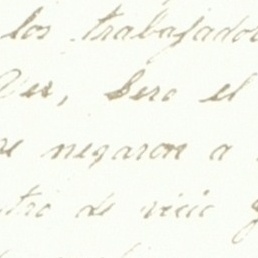 los trabajador
Ver, Pero el
se negaron a
tro de vicio y